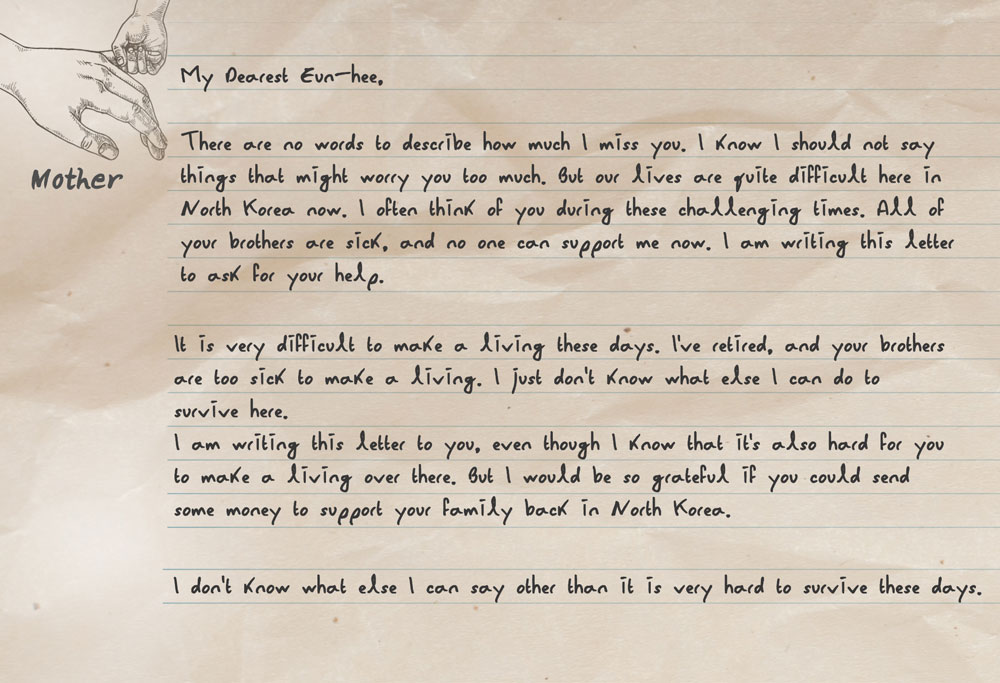 My Dearest Eun-hee,
There are no words to describe how much I miss you. I know I should not say
things that might worry you too much. But our lives are quite difficult here in
North Korea now. I often think of you during these challenging times. All of
your brothers are sick, and no one can support me now. I am writing this letter
to ask for your help.
Mother
It is very difficult to make a living these days. I've retired, and your brothers
are too sick to make a living. I just don't know what else I can do to
survive here.
I am writing this letter to you, even though I know that it's also hard for you
to make a living over there. But I would be so grateful if you could send
some money to support your family back in North Korea.
I don't know what else I can say other than it is very hard to survive these days.